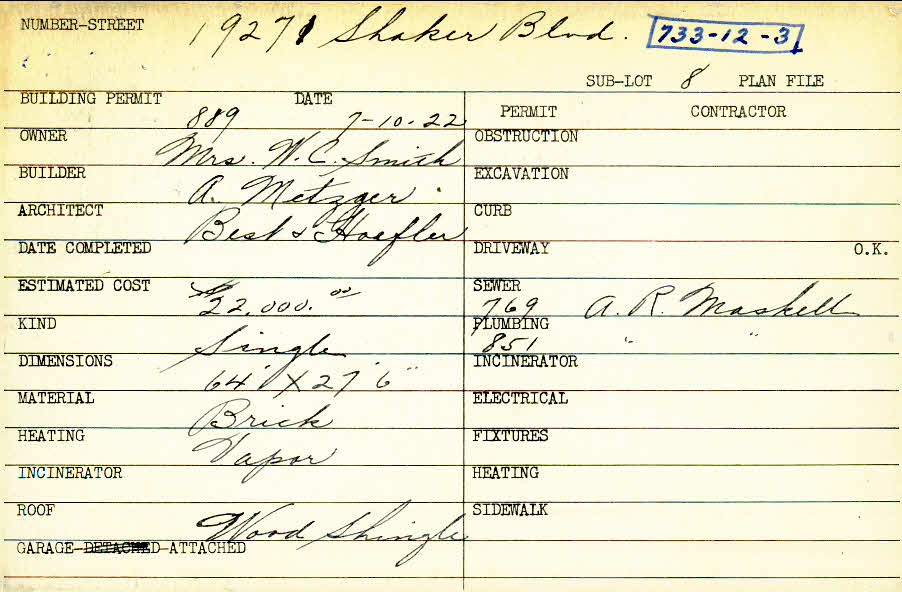 NUMBER-STREET 19271 Shaker Blvd. 733-12-3
SUB-LOT 8 PLAN FILE
BUILDING PERMIT 889 DATE 7-10-22
OWNER Mrs. W. C. Smith
BUILDER A. Metzger
ARCHITECT Best & Hoefler
DATE COMPLETED
ESTIMATED COST $22,000.00
KIND Single
DIMENSIONS 64' X 27' 6"
MATERIAL Brick
HEATING Vapor
INCINERATOR
ROOF Wood Shingle
GARAGE-DETACHED-ATTACHED
PERMIT CONTRACTOR
OBSTRUCTION
EXCAVATION
CURB
DRIVEWAY O.K.
SEWER 769 A. R. Maskell
PLUMBING 851 " "
INCINERATOR
ELECTRICAL
FIXTURES
HEATING
SIDEWALK